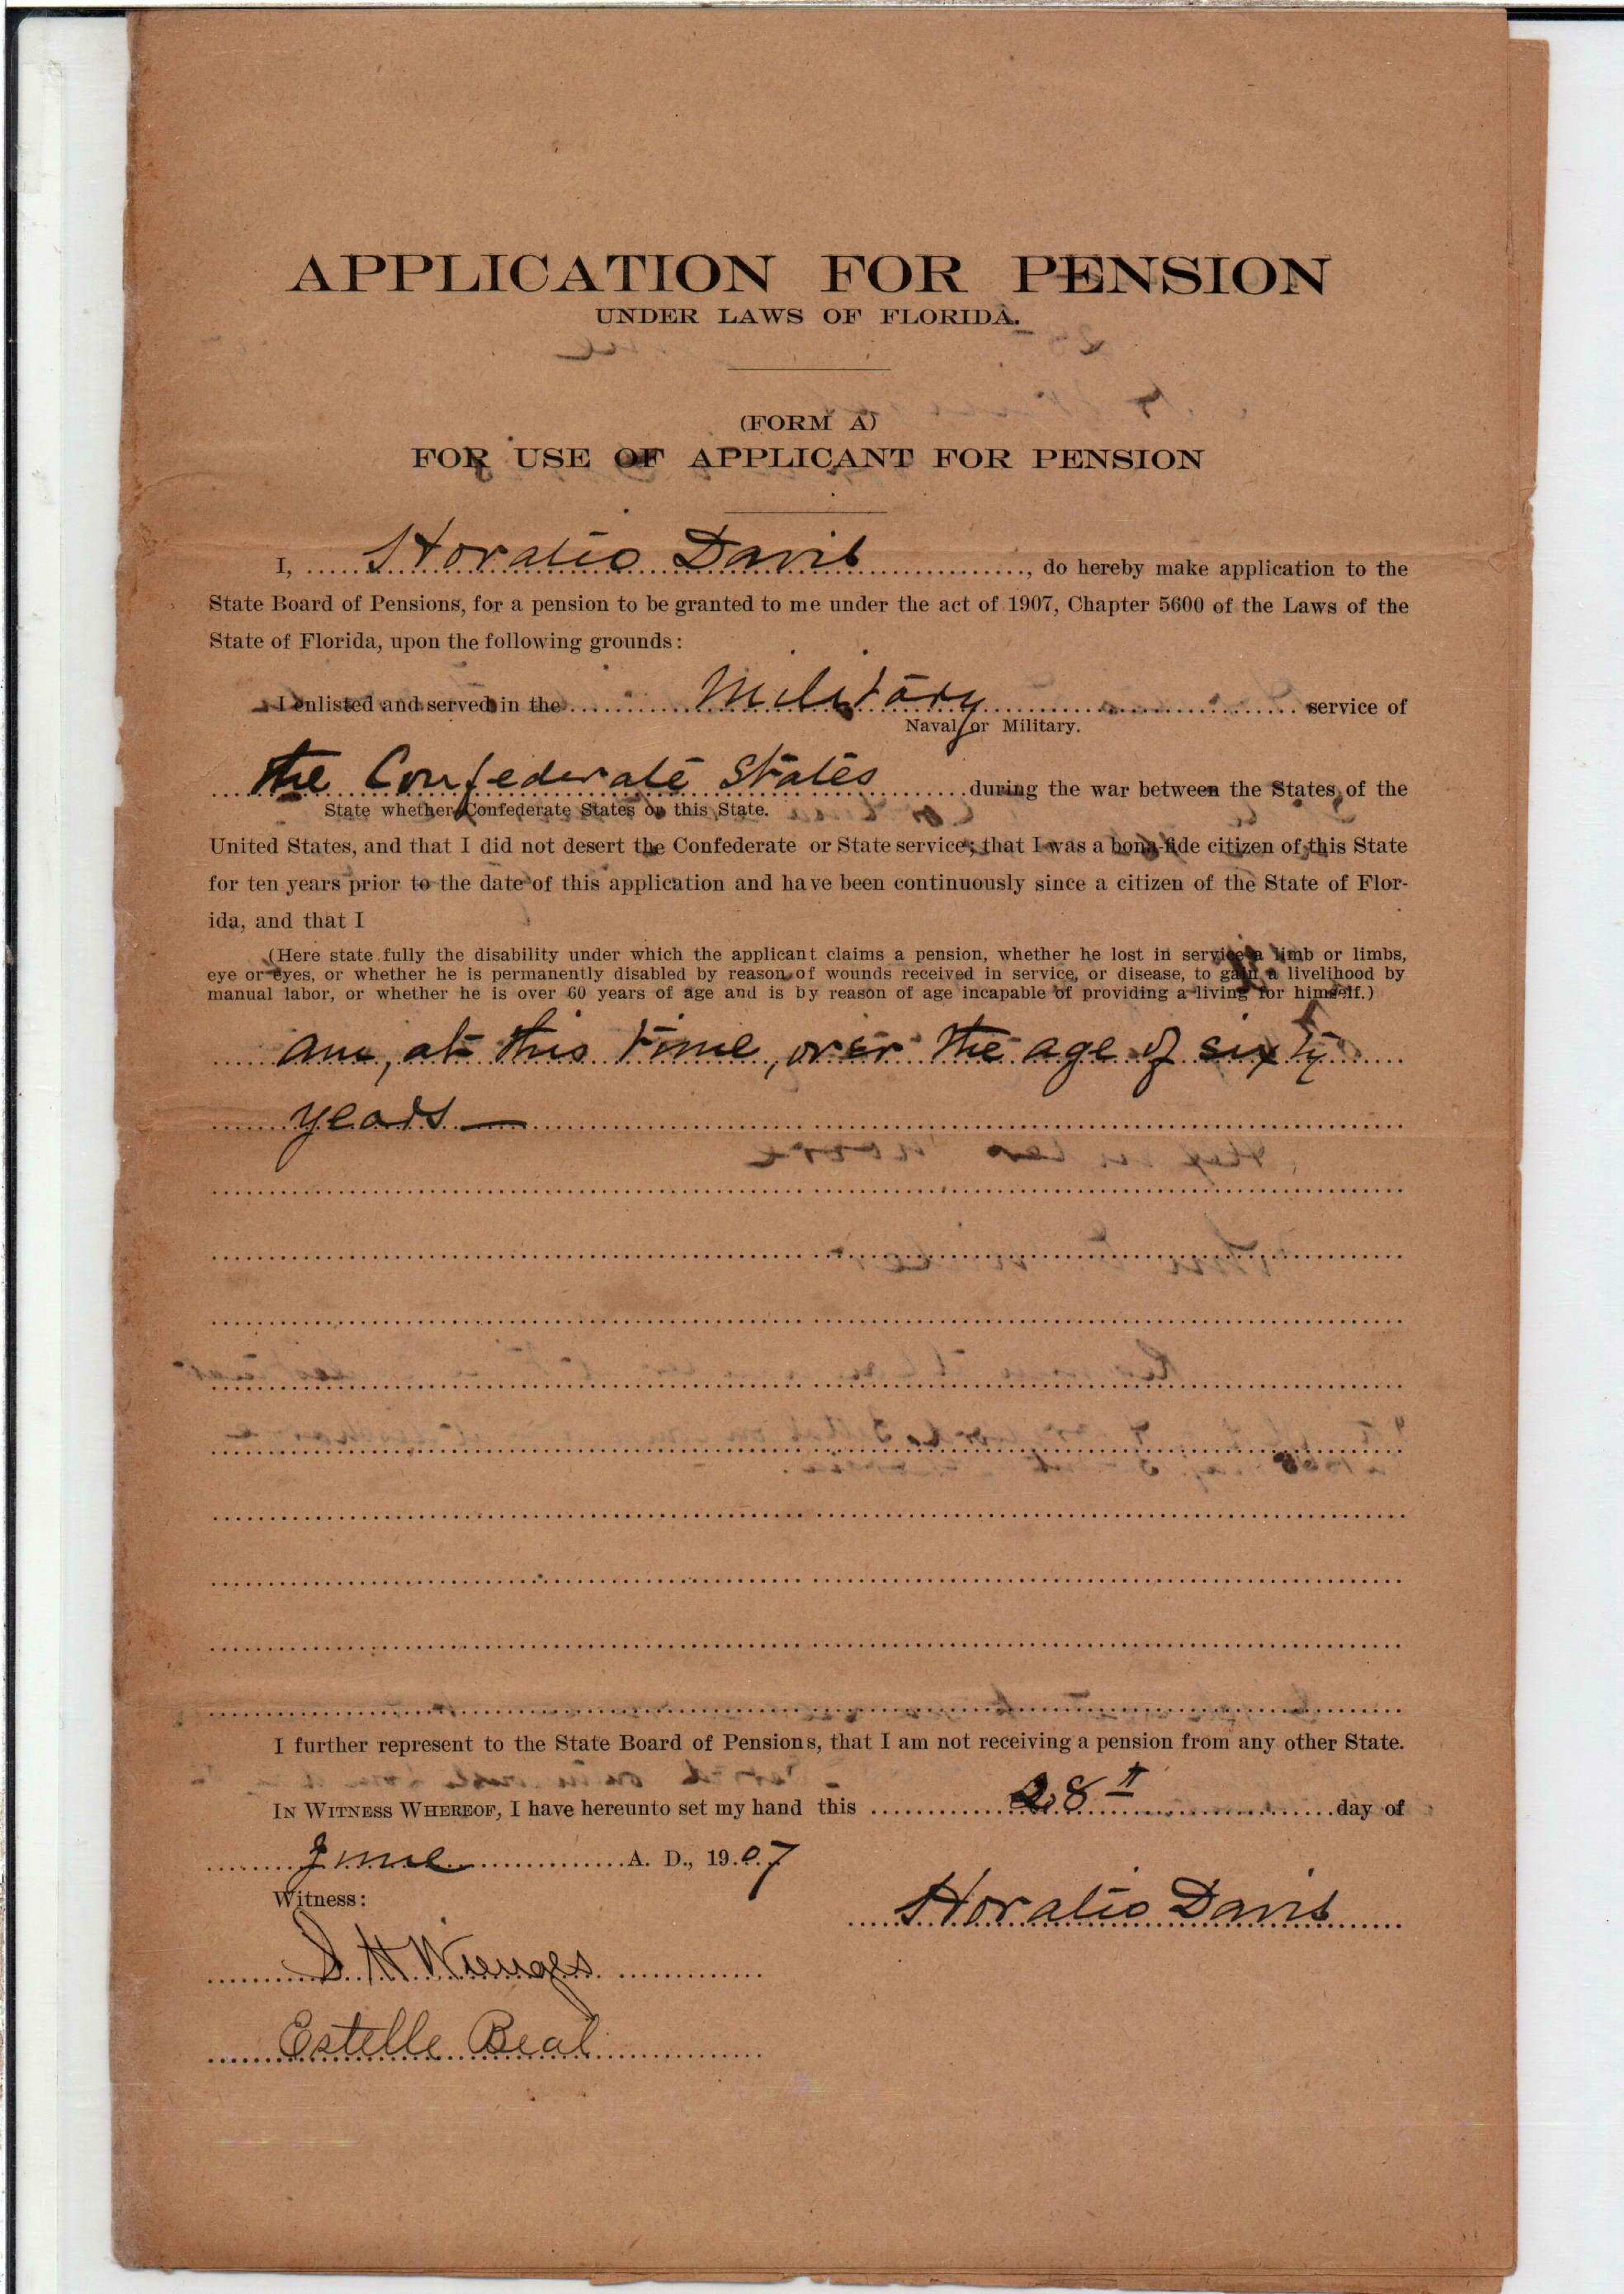 APPLICATION FOR PENSION
UNDER LAWS OF FLORIDA.
(FORM A)
FOR USE OF APPLICANT FOR PENSION
I, Horatio Davis, do hereby make application to the
State Board of Pensions, for a pension to be granted to me under the act of 1907, Chapter 5600 of the Laws of the
State of Florida, upon the following grounds:
I enlisted and served in the Military service of
Naval or Military.
the Confederate States during the war between the States, of the
State whether Confederate States or this State.
United States, and that I did not desert the Confederate or State service; that I was a bona-fide citizen of this State
for ten years prior to the date of this application and have been continuously since a citizen of the State of Flor-
ida, and that I
(Here state fully the disability under which the applicant claims a pension, whether he lost in service a limb or limbs,
eye or eyes, or whether he is permanently disabled by reason of wounds received in service, or disease, to gain a livelihood by
manual labor, or whether he is over 60 years of age and is by reason of age incapable of providing a living for himself.)
am, at this time, over the age of sixty
years—
I further represent to the State Board of Pensions, that I am not receiving a pension from any other State.
In Witness Whereof, I have hereunto set my hand this 28th day of
June A. D., 1907
Witness:
Horatio Davis
S. H. Wienges
Estelle Beal